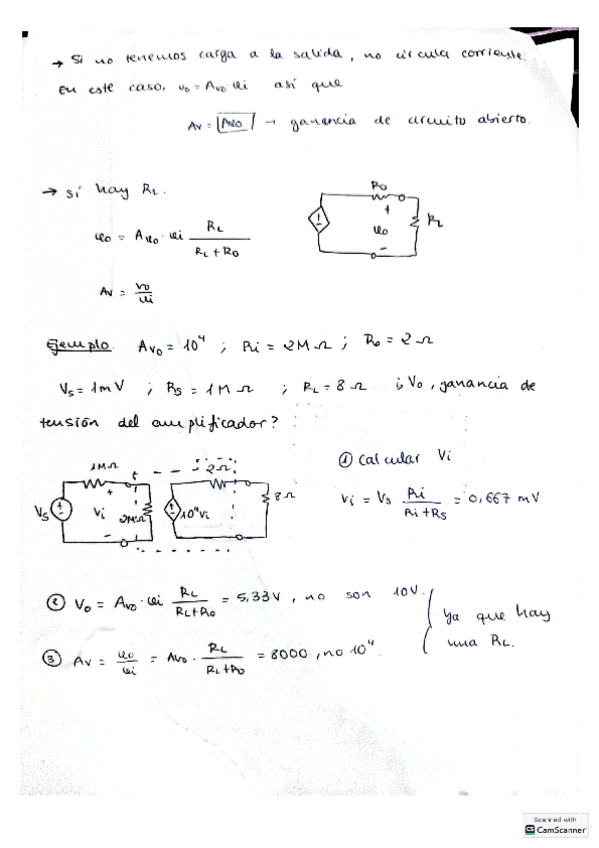 → Si no tenemos carga a la salida, no circula corriente.
En este caso, vo = Avo vi así que
Av = Avo → ganancia de circuito abierto.
→ Si hay RL.
vo = Avo · vi RL / RL + RO
Av = vo / vi
RO
+
vo
-
RL
Ejemplo. Avo = 10⁴ ; Ri = 2MΩ ; Ro = 2Ω
Vs = 1mV ; Rs = 1MΩ ; RL = 8Ω ¿Vo, ganancia de
tensión del amplificador?
1MΩ
+
2Ω
Vs
Vi
2MΩ
10⁴Vi
8Ω
-
① Calcular Vi
Vi = Vs Ri / Ri+Rs = 0,667 mV
② Vo = Avo · vi RL / RL+Ro = 5,33V, no son 10V.
③ Av = vo / vi = Avo · RL / RL+Ro = 8000, no 10⁴.
ya que hay
una RL.
Scanned with
CS CamScanner